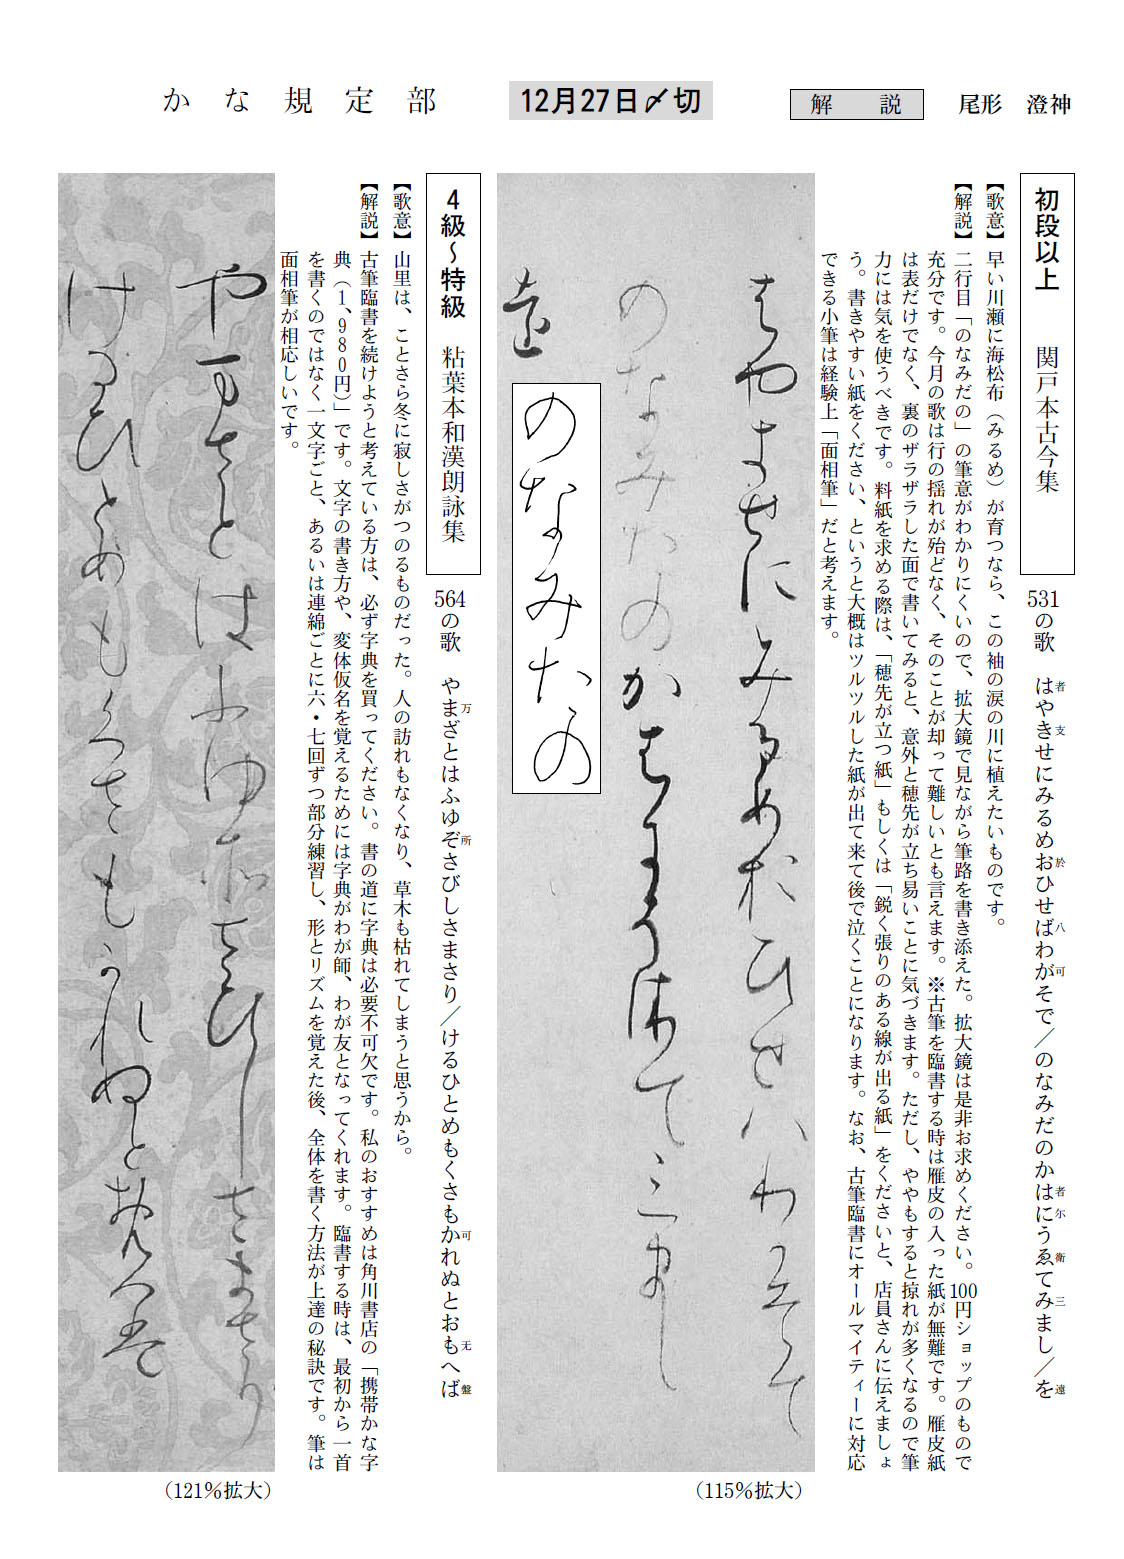 かな規定部
12月27日〆切
解説
尾形 澄神
初段以上 関戸本古今集
531の歌 はやきせにみるめおひせばわがそで／のなみだのかはにうゑてみまし／を
者 支 於 八 可 者 尓 衛 三 遠
【歌意】早い川瀬に海松布（みるめ）が育つなら、この袖の涙の川に植えたいものです。
【解説】二行目「のなみだの」の筆意がわかりにくいので、拡大鏡で見ながら筆路を書き添えた。拡大鏡は是非お求めください。100円ショップのもので
充分です。今月の歌は行の揺れが殆どなく、そのことが却って難しいとも言えます。※古筆を臨書する時は雁皮の入った紙が無難です。雁皮紙
は表だけでなく、裏のザラザラした面で書いてみると、意外と穂先が立ち易いことに気づきます。ただし、ややもすると掠れが多くなるので筆
力には気を使うべきです。料紙を求める際は、「穂先が立つ紙」もしくは「鋭く張りのある線が出る紙」をくださいと、店員さんに伝えましょ
う。書きやすい紙をください、というと大概はツルツルした紙が出て来て後で泣くことになります。なお、古筆臨書にオールマイティーに対応
できる小筆は経験上「面相筆」だと考えます。
はやきせにみるめおひせはわかそて
のなみたのかはにうゑてみまし
遠
のなみたの
（115％拡大）
4級～特級 粘葉本和漢朗詠集
564の歌 やまざとはふゆぞさびしさまさり／けるひとめもくさもかれぬとおもへば
万 所 可 无 盤
【歌意】山里は、ことさら冬に寂しさがつのるものだった。人の訪れもなくなり、草木も枯れてしまうと思うから。
【解説】古筆臨書を続けようと考えている方は、必ず字典を買ってください。書の道に字典は必要不可欠です。私のおすすめは角川書店の「携帯かな字
典（1、980円）」です。文字の書き方や、変体仮名を覚えるためには字典がわが師、わが友となってくれます。臨書する時は、最初から一首
を書くのではなく一文字ごと、あるいは連綿ごとに六・七回ずつ部分練習し、形とリズムを覚えた後、全体を書く方法が上達の秘訣です。筆は
面相筆が相応しいです。
やまさとはふゆそさひしさまさり
けるひとめもくさもかれぬとおもへは
（121％拡大）